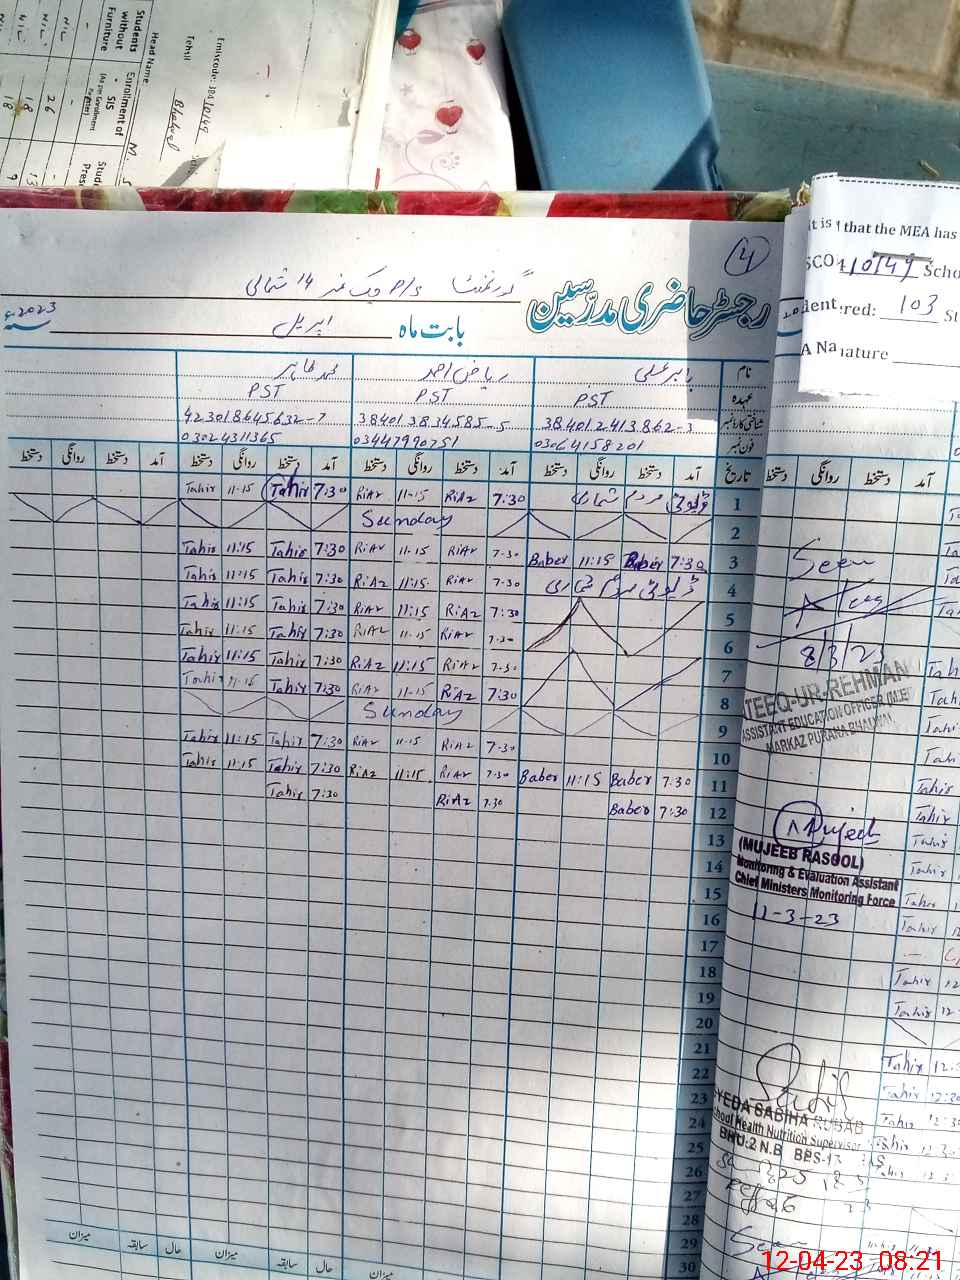 Emiscode: 38410149
Tehsil Bhalwal
Head Name
Students without Furniture
Enrollment of SIS
(As per Enrollment Register)
NIL
26
18
18
4
رجسٹر حاضری مدرسین
گورنمنٹ P/S چک نمبر 14 شمالی
بابت ماہ اپریل 2023
نام بابر علی ریاض احمد محمد طاہر
عہدہ PST PST PST
شناختی کارڈ نمبر 38401 2413862-3 38401 3834585-5 42301 8645632-7
فون نمبر 03064158201 03447990751 03024311365
تاریخ آمد دستخط روانگی دستخط آمد دستخط روانگی دستخط آمد دستخط روانگی دستخط آمد دستخط روانگی دستخط
1 ڈیوٹی مردم شماری 7:30 RiAz 11-15 RiAz 7:30 Tahir 11-15 Tahir
2 Sunday
3 7:30 Baber 11:15 Baber 7:30 RiAz 11-15 RiAz 7:30 Tahir 11:15 Tahir
4 ڈیوٹی مردم شماری 7:30 RiAz 11:15 RiAz 7:30 Tahir 11:15 Tahir
5 7:30 RiAz 11:15 RiAz 7:30 Tahir 11:15 Tahir
6 7:30 RiAz 11-15 RiAz 7:30 Tahir 11:15 Tahir
7 7:30 RiAz 11:15 RiAz 7:30 Tahir 11:15 Tahir
8 7:30 RiAz 11-15 RiAz 7:30 Tahir 11-15 Tahir
9 Sunday
10 7:30 RiAz 11-15 RiAz 7:30 Tahir 11:15 Tahir
11 7:30 Baber 11:15 Baber 7:30 RiAz 11:15 RiAz 7:30 Tahir 11:15 Tahir
12 7:30 Baber 7:30 RiAz 7:30 Tahir
13
14
15
16
17
18
19
20
21
22
23
24
25
26
27
28
29
30
میزان سابقہ حال میزان سابقہ حال میزان
that the MEA has
10149 Scho
ered: 103 St
A Na
nature
آمد دستخط روانگی دستخط
Seen
8/3/23
TEEQ-UR-REHMAN
ASSISTANT EDUCATION OFFICER (M.EE)
MARKAZ PURANA BHALWAL
Mujeeb
(MUJEEB RASOOL)
Monitoring & Evaluation Assistant
Chief Ministers Monitoring Force
11-3-23
YEDA SABIHA RUBAB
School Health Nutrition Supervisor
BHU:2 N.B BPS-17
Seen
12-04-23 08:21